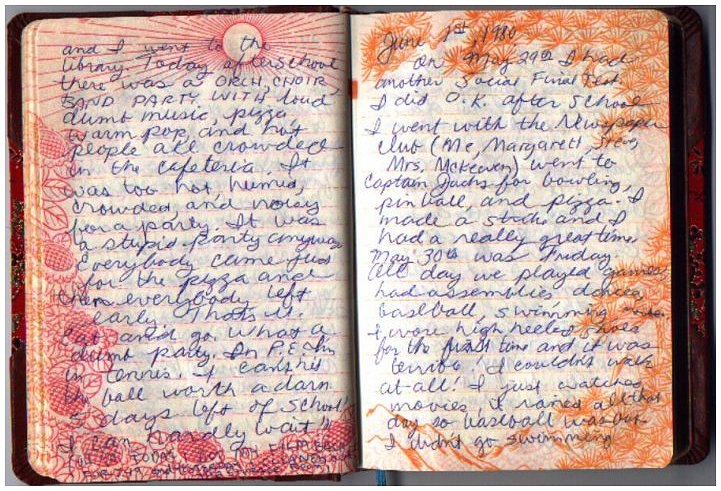 and I went to the
library. Today afterschool
there was a ORCH, CHOIR,
BAND PARTY WITH loud
dumb music, pizza,
warm pop, and hot
people all crowded
in the cafeteria. It
was too hot, humid,
crowded and noisy
for a party. It was
a stupid party anyway
Everybody came just
for the pizza and
then everybody left
early. Thats it.
Eat and go. What a
dumb party. In P.E. Im
in tennis. I can't hit
the ball worth a darn
days left of school!!
I can hardly wait!!
TODAY MY FILM
FOR 7.47
June 1st, 1980
on May 29th I had
another Social Final Test.
I did O.K. after School
I went with the Newspaper
Club (Me, Margarett, Steve,
Mrs. McKeown) went to
Captain Jacks for bowling,
pinball, and pizza. I
made a strike and I
had a really great time.
May 30th was Friday.
All day we played games,
had assemblies, dances,
baseball, swimming
I wore high heeled shoes
for the first time and it was
terrible! I couldn't walk
at-all! I just watched
movies, it rained all that
day so baseball was out.
I didn't go swimming